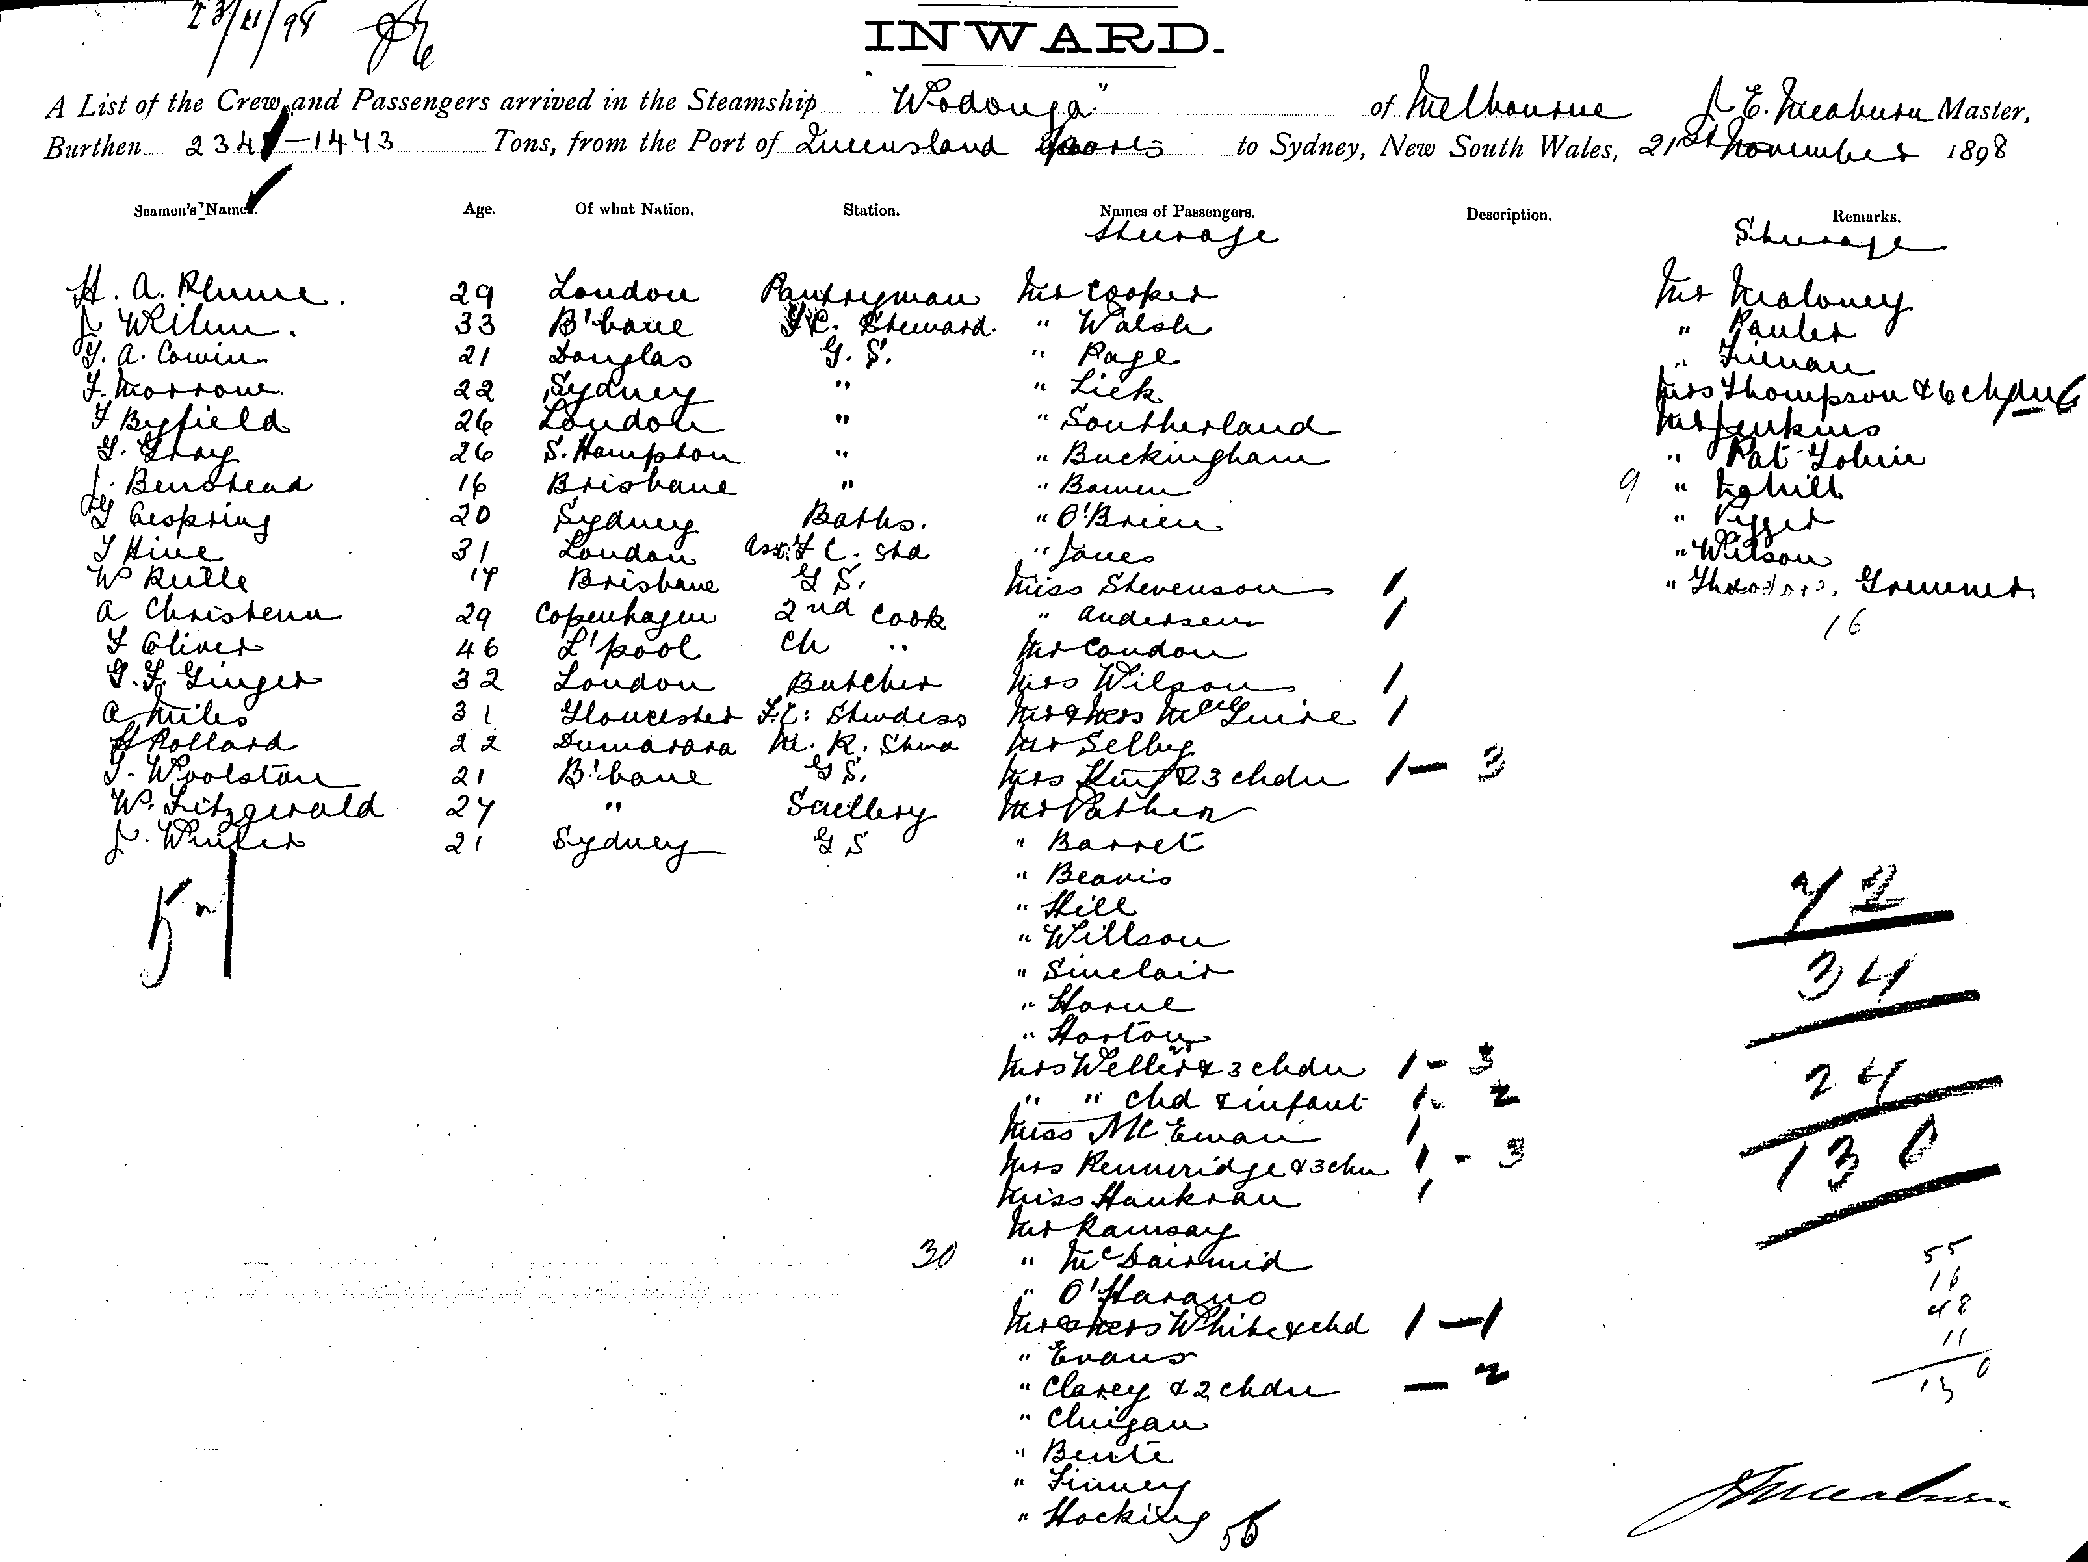 23/11/98
INWARD.
A List of the Crew and Passengers arrived in the Steamship "Wodonga" of Melbourne J E. Meaburn Master,
Burthen 234 - 1443 Tons, from the Port of Queensland Ports to Sydney, New South Wales, 21st November 1898
Seamen's Names. Age. Of what Nation. Station. Names of Passengers. Description. Remarks.
Steerage Steerage
H. A. Plume. 29 London Pantryman Mr Cooper Mr Maloney
J Wilson. 33 B'bane F C. Steward. " Walsh "
T. A. Cowin 21 Douglas G. S. " Page "
F. Morrow 22 Sydney " " Lick Mrs Thompson & 6 chdn 6
F Byfield 26 London " " Southerland Mr Jenkins
G. Gray 26 S. Hampton " " Buckingham " Pat Tobin
J. Benstead 16 Brisbane " " Bowen 9 " Cahill
20 Sydney Baths. " O'Brien "
T Hine 31 London Asst F C. Std " Jones " Wilson
W Rulle 19 Brisbane G S. Miss Stevenson 1 " Theodore Grimmer
A Christenn 29 Copenhagen 2nd Cook " Andersen 1 16
F Oliver 46 L'pool Ch " Mr Condon
G. F. Ginger 32 London Butcher Mrs Wilson 1
A Miles 31 Gloucester F. C: Stwdess Mr & Mrs McGuire 1
H Pollard 22 Dumarara M. R. Stwd Mr Selby
T. Woolston 21 B'bane G S. Mrs King & 3 chdn 1 - 3
W. Fitzgerald 27 " Scullery Mr Pathen
J. Winter 21 Sydney G S " Barret
57
" Beavis 72
" Hill
" Willson
" Sinclair 34
" Horne
" Horton
Mrs Weller & 3 chdn 1 - 3 24
" " chd & infant 1 - 2
Miss McEwan 1 130
Mrs Kenneridge & 3 chn 1 - 3
Miss Hankran 1
Mr Ramsay
30 " McDairmid 55
" O'Harano 16
Mr & Mrs White & chd 1 - 1 48
" Evans 11
" Clarey & 2 chdn - 2 130
" Chigan
" Bente
" Finney
" Hocking 56
J E Meaburn